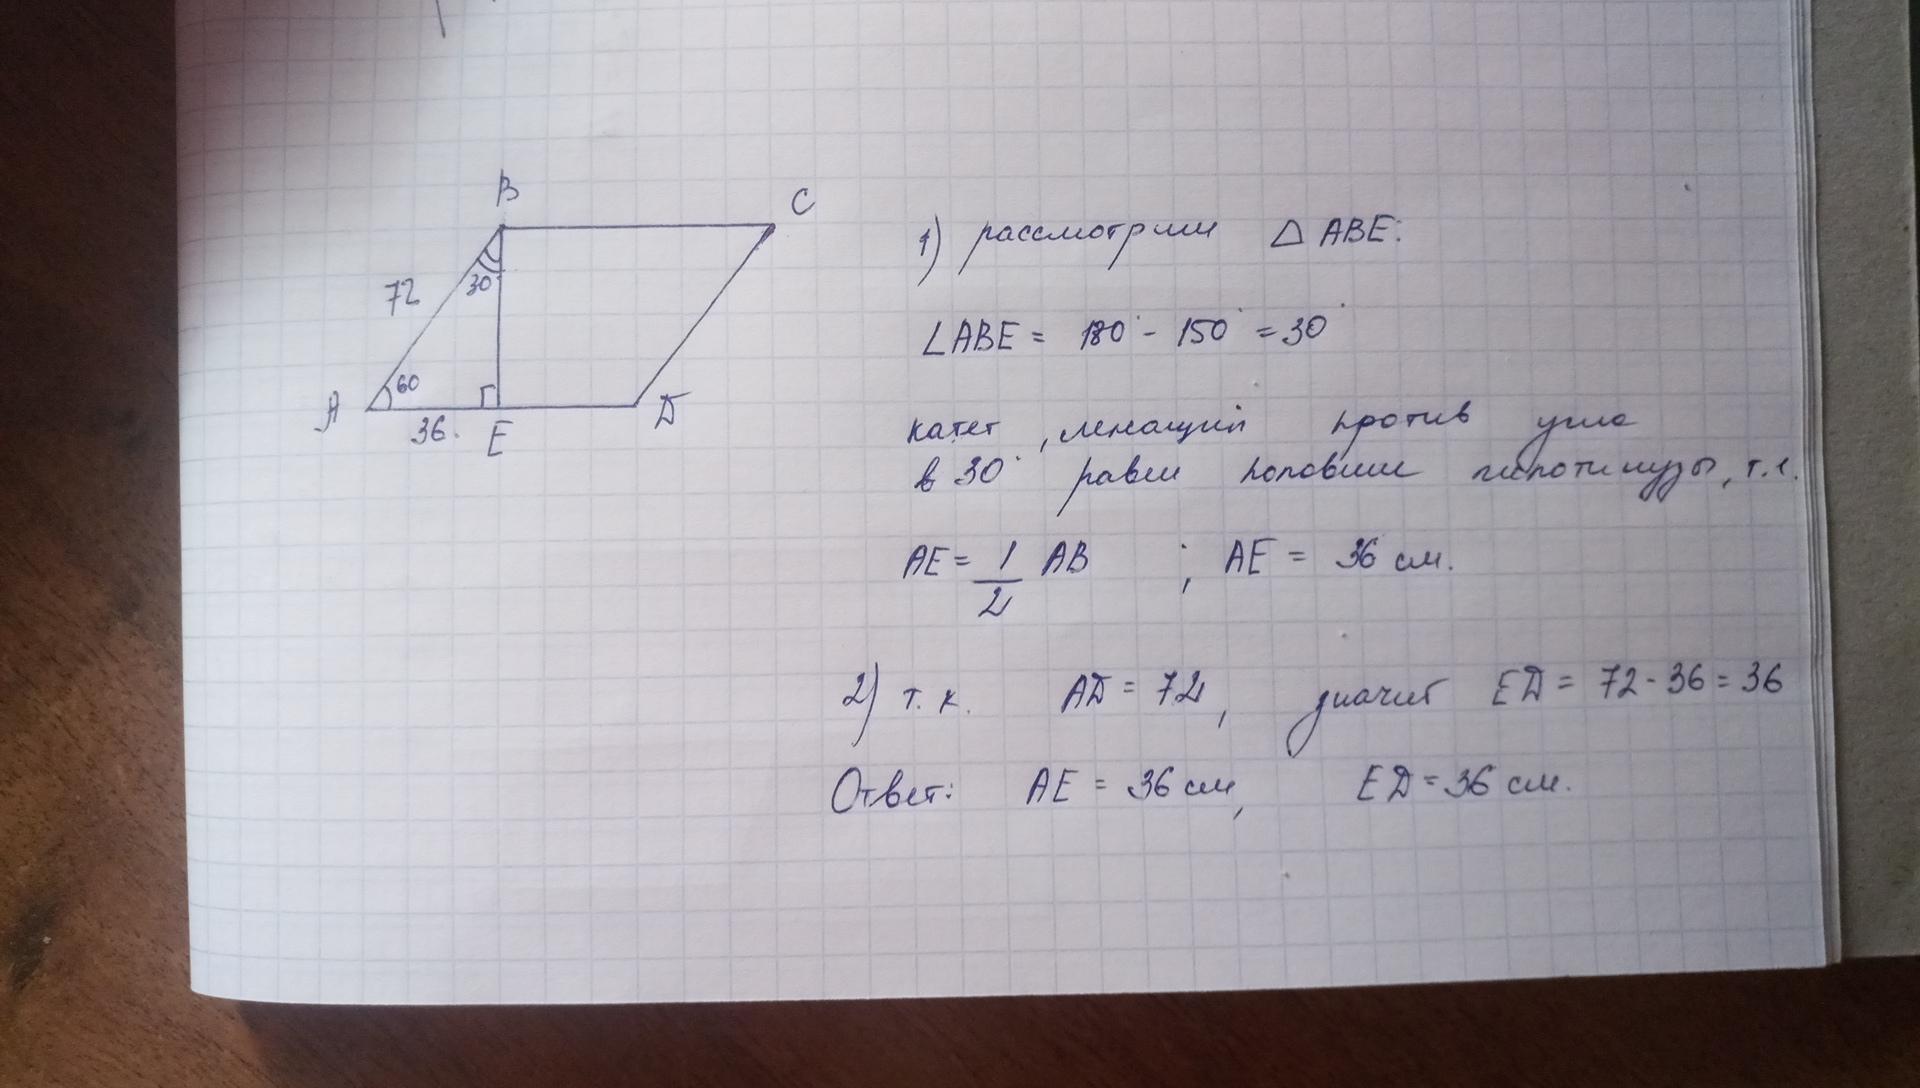 B
C
72
30
A
60
36.
E
D
1) рассмотрим △ ABE:
∠ABE = 180° - 150° = 30°
катет, лежащий против угла
в 30° равен половине гипотинузы, т.е.
AE = 1/2 AB ; AE = 36 см.
2) т. к. AD = 72, значит ED = 72 - 36 = 36
Ответ: AE = 36 см, ED = 36 см.